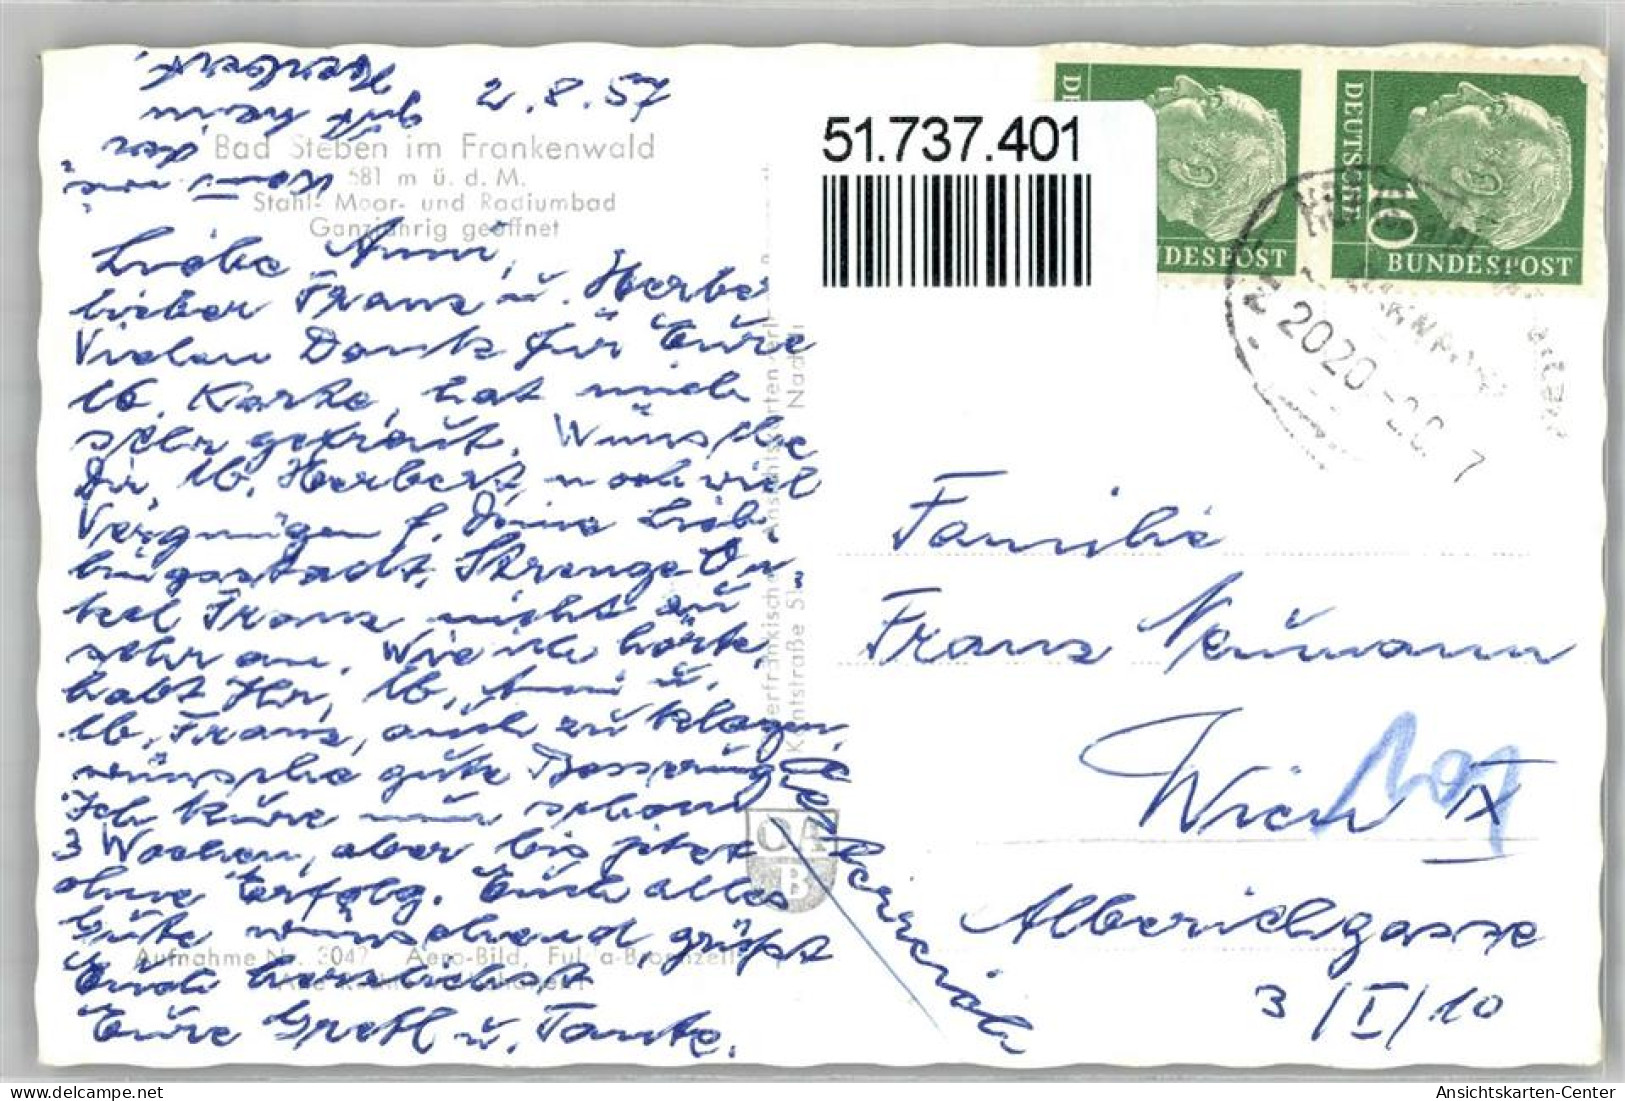 2.8.57
Bad Steben im Frankenwald
581 m ü. d. M.
Stahl- Moor- und Radiumbad
Ganzjährig geöffnet
Liebe Anni,
lieber Franz u. Herbert
Vielen Dank für Eure
lb. Karte, hat mich
sehr gefreut. Wünsche
Dir, lb. Herbert, noch viel
Vergnügen f. Deine Lieb-
lingsstadt. Strenge On-
kel Franz nicht zu
sehr an. Wie ich hörte,
habt Ihr, lb. Anni u.
lb. Franz, auch zu klagen,
wünsche gute Besserung
Ich kure nun schon
3 Wochen, aber bis jetzt
ohne Erfolg. Euch alles
Gute wünschend grüßt
Euch herzlichst
Eure Gretl u. Tante.
Komm
gut heim
Herbert.
Aufnahme Nr. 3047 Aero-Bild,
51.737.401
DEUTSCHE
BUNDESPOST
10
DEUTSCHE
BUNDESPOST
2020
Familie
Franz Neumann
Wien IX
109
Alberichgasse
3/I/10
CAB
Ansichtskarten-Center